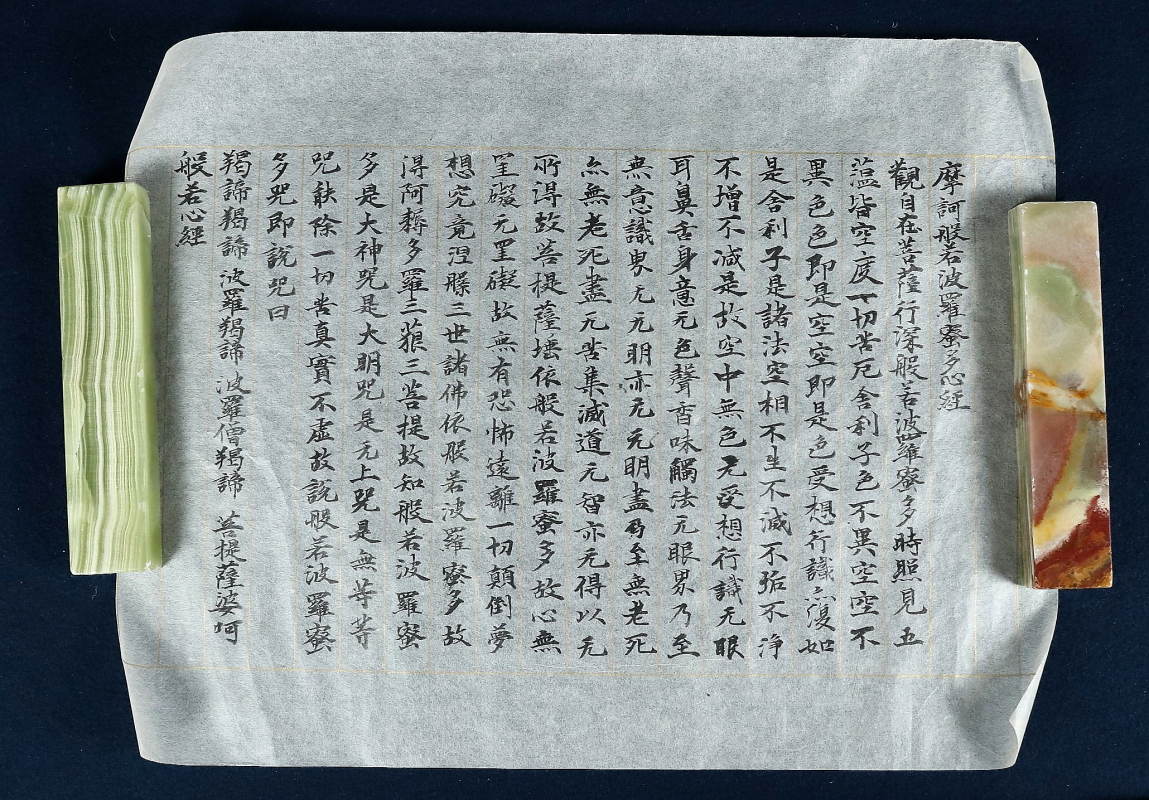 摩訶般若波羅蜜多心經
觀自在菩薩行深般若波羅蜜多時照見五
蕰皆空度一切苦厄舍利子色不異空空不
異色色即是空空即是色受想行識亦復如
是舍利子是諸法空相不生不滅不垢不淨
不增不减是故空中無色无受想行識无眼
耳鼻舌身意无色聲香味觸法无眼界乃至
無意識界无无明亦无无明盡乃至無老死
亦無老死盡无苦集滅道无智亦无得以无
所得故菩提薩埵依般若波羅蜜多故心無
罣礙无罣礙故無有恐怖遠離一切顛倒夢
想究竟涅槃三世諸佛依般若波羅蜜多故
得阿耨多羅三藐三菩提故知般若波羅蜜
多是大神咒是大明咒是无上咒是無等等
咒能除一切苦真實不虛故說般若波羅蜜
多咒即說咒曰
羯諦羯諦 波羅羯諦 波羅僧羯諦 菩提薩婆呵
般若心經